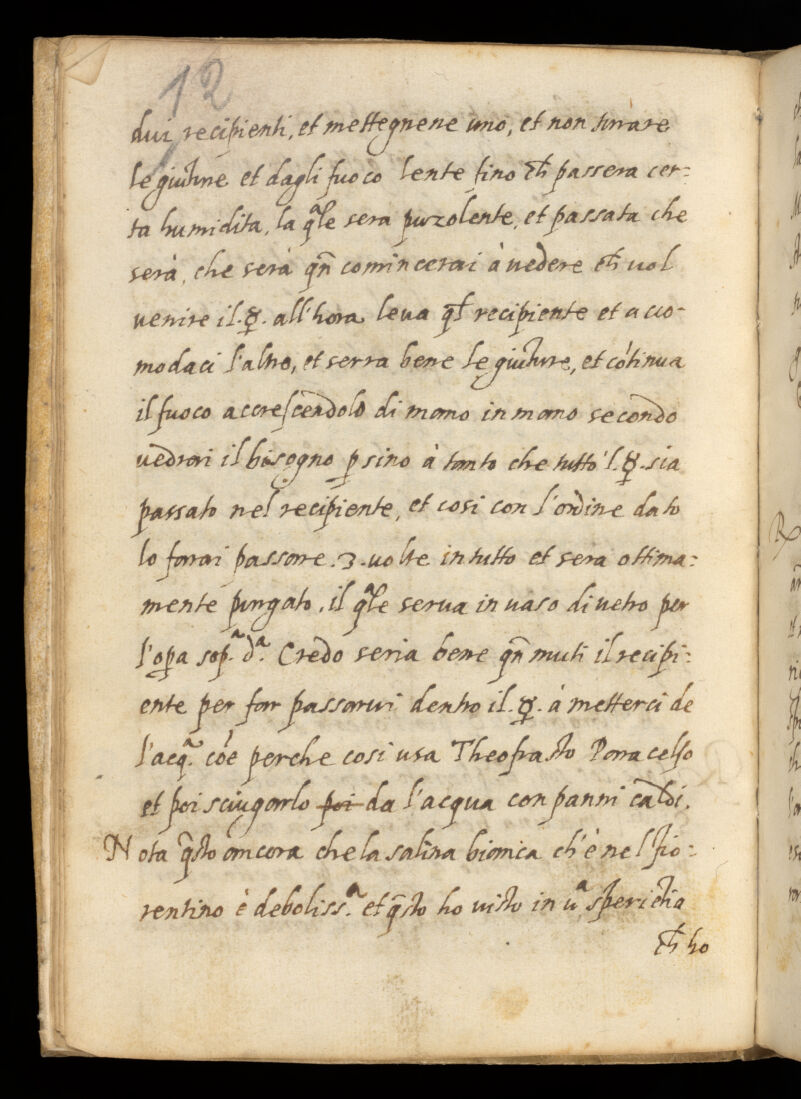 12
dui recipienti, et mettegnene uno, et non turrare
le giuture et dagli fuoco lente fino ch̃ passera cer:
ta humidita, la q̃le sera puzolente, et passata che
serà, che serà qñ comincerai à vedere ch̃ vol
venire il .☿. all'hora leva q̃l recipiente et acco-
modaci l'altro, et serra bene le giuture, et cõtinua
il fuoco accrescendolo di mano in mano secondo
vedrai il bisogno p sino à tanto che tutto 'l .☿. sia
passato nel recipiente, et cosi con l'ordine dato
lo farai passare .3. volte in tutto et sera ottima:
mente purgato, il q̃le serva in vaso di vetro per
l'opa sop.ª d.ª Credo seria bene qñ muti il recipi:
ente per far passarvi dentro il .☿. à metterci de
l'acq.ª cõe perche cosi usa Theofrasto Paracelso
et poi sciugarlo poi da l'acqua con panni caldi.
Nota q̃sto ancora che la salina bianca ch'è nel fio:
rentino è deboliss.ª et q̃sto ho visto in u.ª sperietia
ch̃ ho